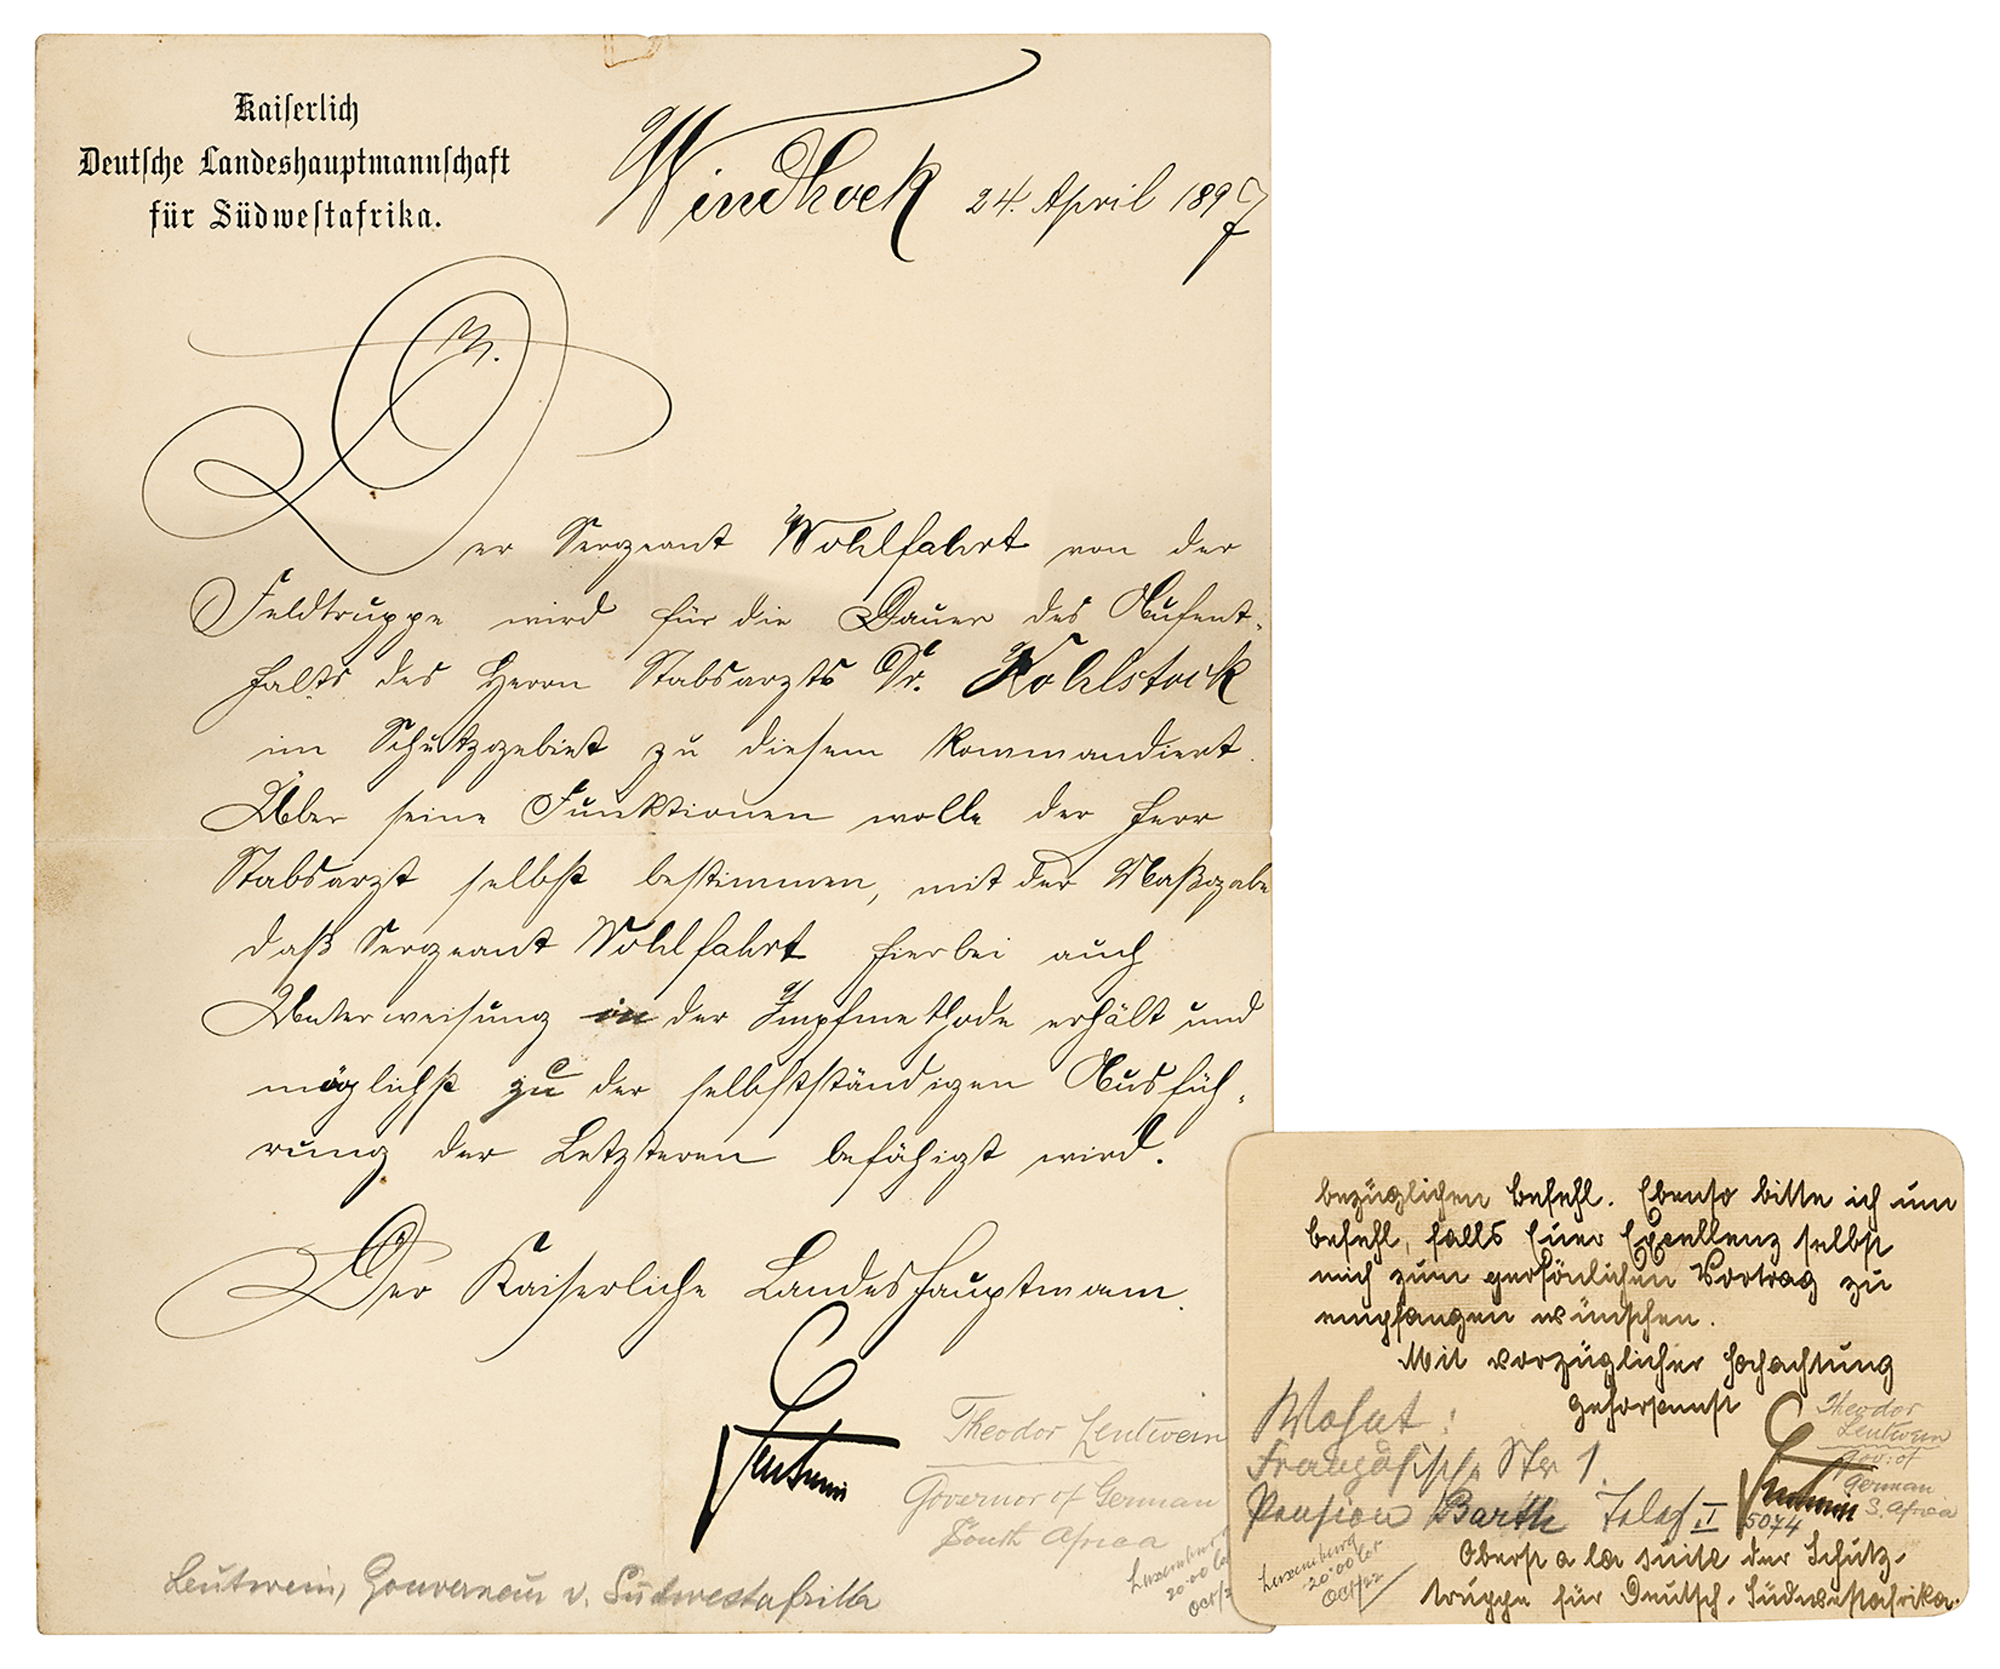 Kaiserlich
Deutsche Landeshauptmannschaft
für Südwestafrika.
Windhoek 24. April 1897
Der Sergeant Wohlfahrt von der
Feldtruppe wird für die Dauer des Aufent-
halts des Herrn Stabsarzts Dr. Kohlstock
im Schutzgebiet zu diesem kommandiert.
Über seine Funktionen wolle der Herr
Stabsarzt selbst bestimmen, mit der Maßgabe
daß Sergeant Wohlfahrt hierbei auch
Unterweisung in der Impfmethode erhält und
möglichst zu der selbstständigen Ausfüh-
rung der Letzteren befähigt wird.
Der Kaiserliche Landeshauptmann.
Leutwein
Theodor Leutwein
Governor of German
South Africa
Leutwein, Gouverneur v. Südwestafrika
bezüglichen Befehl. Ebenso bitte ich um
Befehl, falls Euer Excellenz selbst
mich zum persönlichen Vortrag zu
empfangen wünschen.
Mit vorzüglicher Hochachtung
gehorsamst
Leutwein
Theodor
Leutwein
Gov: of
German
S. Africa
Wohnt:
Französische Str 1.
Pension Barth Telef I 5074
Oberst a la suite der Schutz-
truppe für Deutsch-Südwestafrika.
Luxemburg
20·00
Oct/22